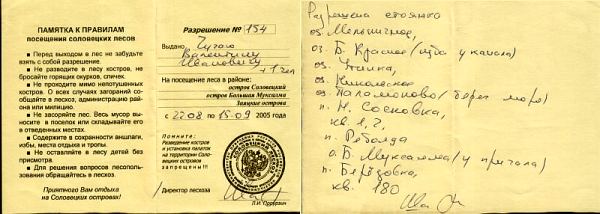 ПАМЯТКА К ПРАВИЛАМ
посещения соловецких лесов
● Перед выходом в лес не забудьте
взять с собой разрешение.
● Не разводите в лесу костров, не
бросайте горящих окурков, спичек.
● Не проходите мимо непотушенных
костров. О всех случаях загораний со-
общайте в лесхоз, администрацию рай-
она или милицию.
● Не засоряйте лес. Весь мусор вы-
носите в поселок или складывайте его
в отведенных местах.
● Содержите в сохранности аншлаги,
избы, места отдыха и тропы.
● Не оставляйте в лесу детей без
присмотра.
● Для решения вопросов лесопользо-
вания обращайтесь в лесхоз.
Приятного Вам отдыха
на Соловецких островах!
Разрешение № 154
Выдано
Валентину
Ивановичу
+ 1 чел
На посещение леса в районе:
остров Соловецкий
остров Большая Муксалма
Заяцкие острова
с 22.08 по 15.09 2005 года
Помните:
Разведение костров
и установка палаток
на территории Соло-
вецких островов
запрещены!!!
Директор лесхоза
Разрешена стоянка
оз. Мельничное,
оз. Б. Красное (изба у канала)
оз.
оз.
оз. (берег моря)
п. Н. Сосновка,
кв. 1, 2,
п. Реболда
о. Б. Муксалма (у причала)
п. Берёзовка,
кв. 180